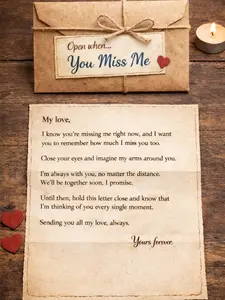 Open when...
You Miss Me
My love,
I know you're missing me right now, and I want
you to remember how much I miss you too.
Close your eyes and imagine my arms around you.
I'm always with you, no matter the distance.
We'll be together soon, I promise.
Until then, hold this letter close and know that
I'm thinking of you every single moment.
Sending you all my love, always.
Yours forever.